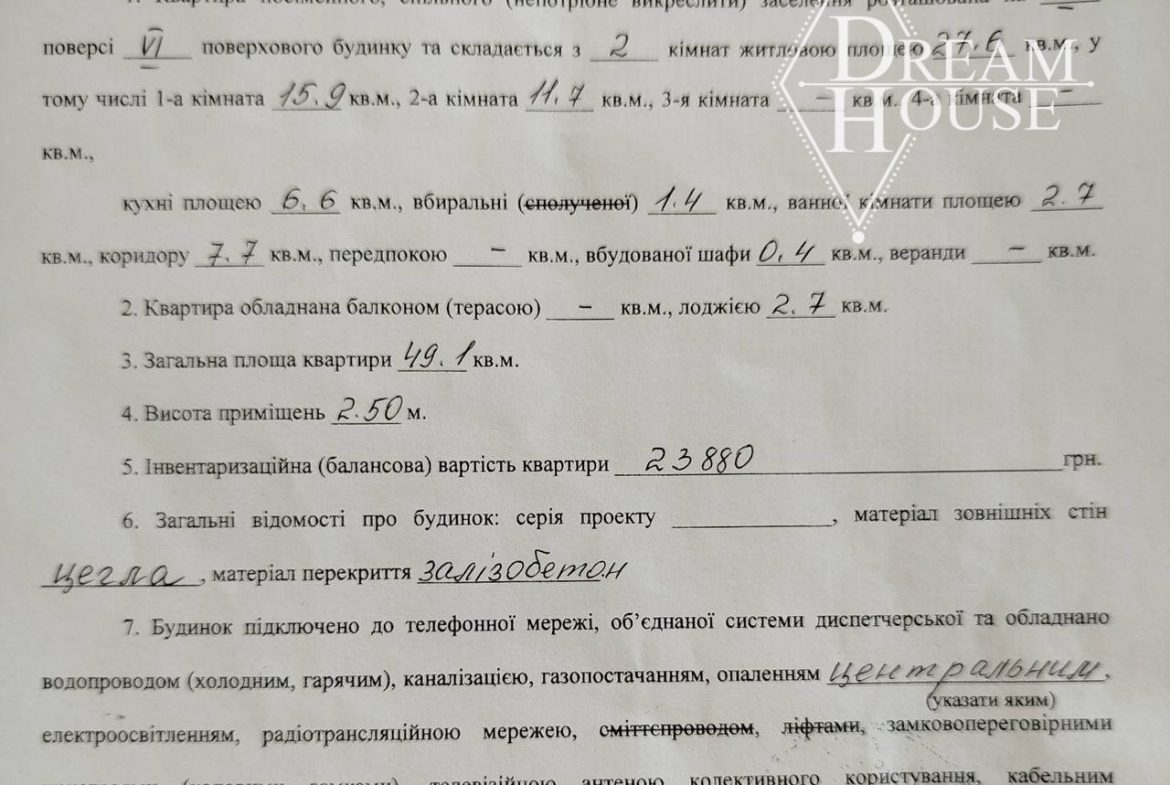 1. Квартира посімейного, спільного (непотрібне викреслити) заселення розташована на –
поверсі VI поверхового будинку та складається з 2 кімнат житловою площею 27.6 кв.м., у
тому числі 1-а кімната 15.9 кв.м., 2-а кімната 11.7 кв.м., 3-я кімната – кв.м., 4-а кімната –
кв.м.,
кухні площею 6.6 кв.м., вбиральні (сполученої) 1.4 кв.м., ванної кімнати площею 2.7
кв.м., коридору 7.7 кв.м., передпокою – кв.м., вбудованої шафи 0.4 кв.м., веранди – кв.м.
2. Квартира обладнана балконом (терасою) – кв.м., лоджією 2.7 кв.м.
3. Загальна площа квартири 49.1 кв.м.
4. Висота приміщень 2.50 м.
5. Інвентаризаційна (балансова) вартість квартири 23880 грн.
6. Загальні відомості про будинок: серія проекту ____________, матеріал зовнішніх стін
цегла, матеріал перекриття залізобетон
7. Будинок підключено до телефонної мережі, об’єднаної системи диспетчерської та обладнано
водопроводом (холодним, гарячим), каналізацією, газопостачанням, опаленням центральним,
(указати яким)
електроосвітленням, радіотрансляційною мережею, сміттєпроводом, ліфтами, замковопереговірними
телевізійною антеною колективного користування, кабельним
DREAM
HOUSE